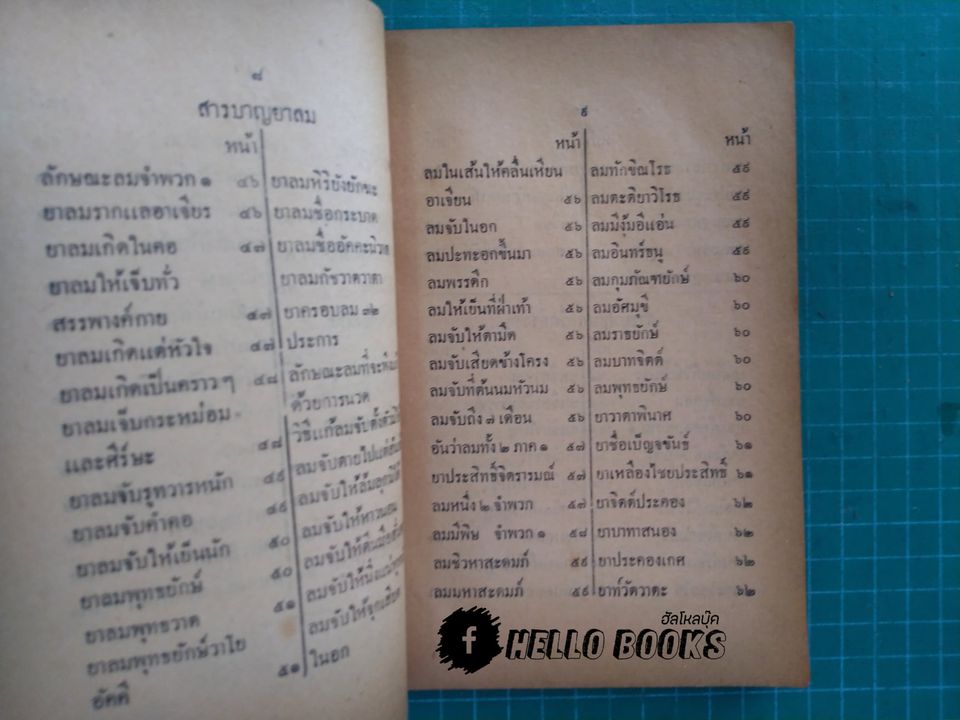 ๘
สารบาญยาลม
หน้า
ลักษณะลมจำพวก ๑ ๔๖
ยาลมรากแลอาเจียร ๔๖
ยาลมเกิดในคอ ๔๗
ยาลมให้เจ็บทั่ว
สรรพางค์กาย ๔๗
ยาลมเกิดแต่หัวใจ ๔๗
ยาลมเกิดเป็นคราว ๆ ๔๘
ยาลมเจ็บกระหม่อม
และศีร์ษะ ๔๘
ยาลมจับรูทวารหนัก ๔๙
ยาลมจับคำคอ ๔๙
ยาลมจับให้เย็นนัก ๕๐
ยาลมพุทธยักษ์ ๕๐
ยาลมพุทธวาต ๕๑
ยาลมพุทธยักษ์วาโย
อัคคี ๕๑
ยาลมหิริยังยักขะ
ยาลมชื่อกระบาด
ยาลมชื่ออัคคะนิวาต
ยาลมกัชวาตวาตา
ยาครอบลม ๓๒
ประการ
ลักษณะลมที่จะ
ด้วยการนวด
วิธีแก้ลมจับ
ลมจับตายไปแต่
ลมจับให้ล้มลุก
ลมจับให้หาวนอน
ลมจับให้
ลมจับให้
ลมจับให้จุกเสียด
ในอก
๙
หน้า
ลมในเส้นให้คลื่นเหียน
อาเจียน ๕๖
ลมจับในอก ๕๖
ลมปะทะอกขึ้นมา ๕๖
ลมพรรดึก ๕๖
ลมให้เย็นที่ฝ่าเท้า ๕๖
ลมจับให้ตามืด ๕๖
ลมจับเสียดข้างโครง ๕๖
ลมจับที่ต้นนมหัวนม ๕๖
ลมจับถึง ๗ เดือน ๕๖
อันว่าลมทั้ง ๒ ภาค ๑ ๕๗
ยาประสิทธิ์จิตรารมณ์ ๕๗
ลมหนึ่ง ๒ จำพวก ๕๗
ลมมีพิษ จำพวก ๑ ๕๘
ลมชิวหาสะดมภ์ ๕๙
ลมมหาสะดมภ์ ๕๙
หน้า
ลมทักขิณโรธ ๕๙
ลมตะติยาวิโรธ ๕๙
ลมมีงุ้มอีแอ่น ๕๙
ลมอินทร์ธนู ๕๙
ลมกุมภัณฑยักษ์ ๖๐
ลมอัศมุขี ๖๐
ลมราชยักษ์ ๖๐
ลมบาทจิตต์ ๖๐
ลมพุทธยักษ์ ๖๐
ยาวาตาพินาศ ๖๐
ยาชื่อเบ็ญจขันธ์ ๖๑
ยาเหลืองไชยประสิทธิ์ ๖๑
ยาจิตต์ประคอง ๖๒
ยาบาทาสนอง ๖๒
ยาประคองเกศ ๖๒
ยาทั่วัดวาตะ ๖๒
ฮัลโหลบุ๊ค
f HELLO BOOKS